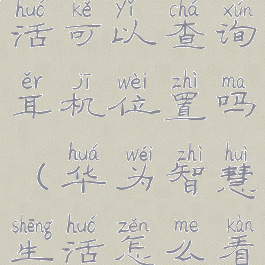 huó kě yǐ chá xún
活可以查询
ěr jī wèi zhì ma
耳机位置吗
huá wéi zhì huì
（华为智慧
shēng huó zěn me kàn
生活怎么看